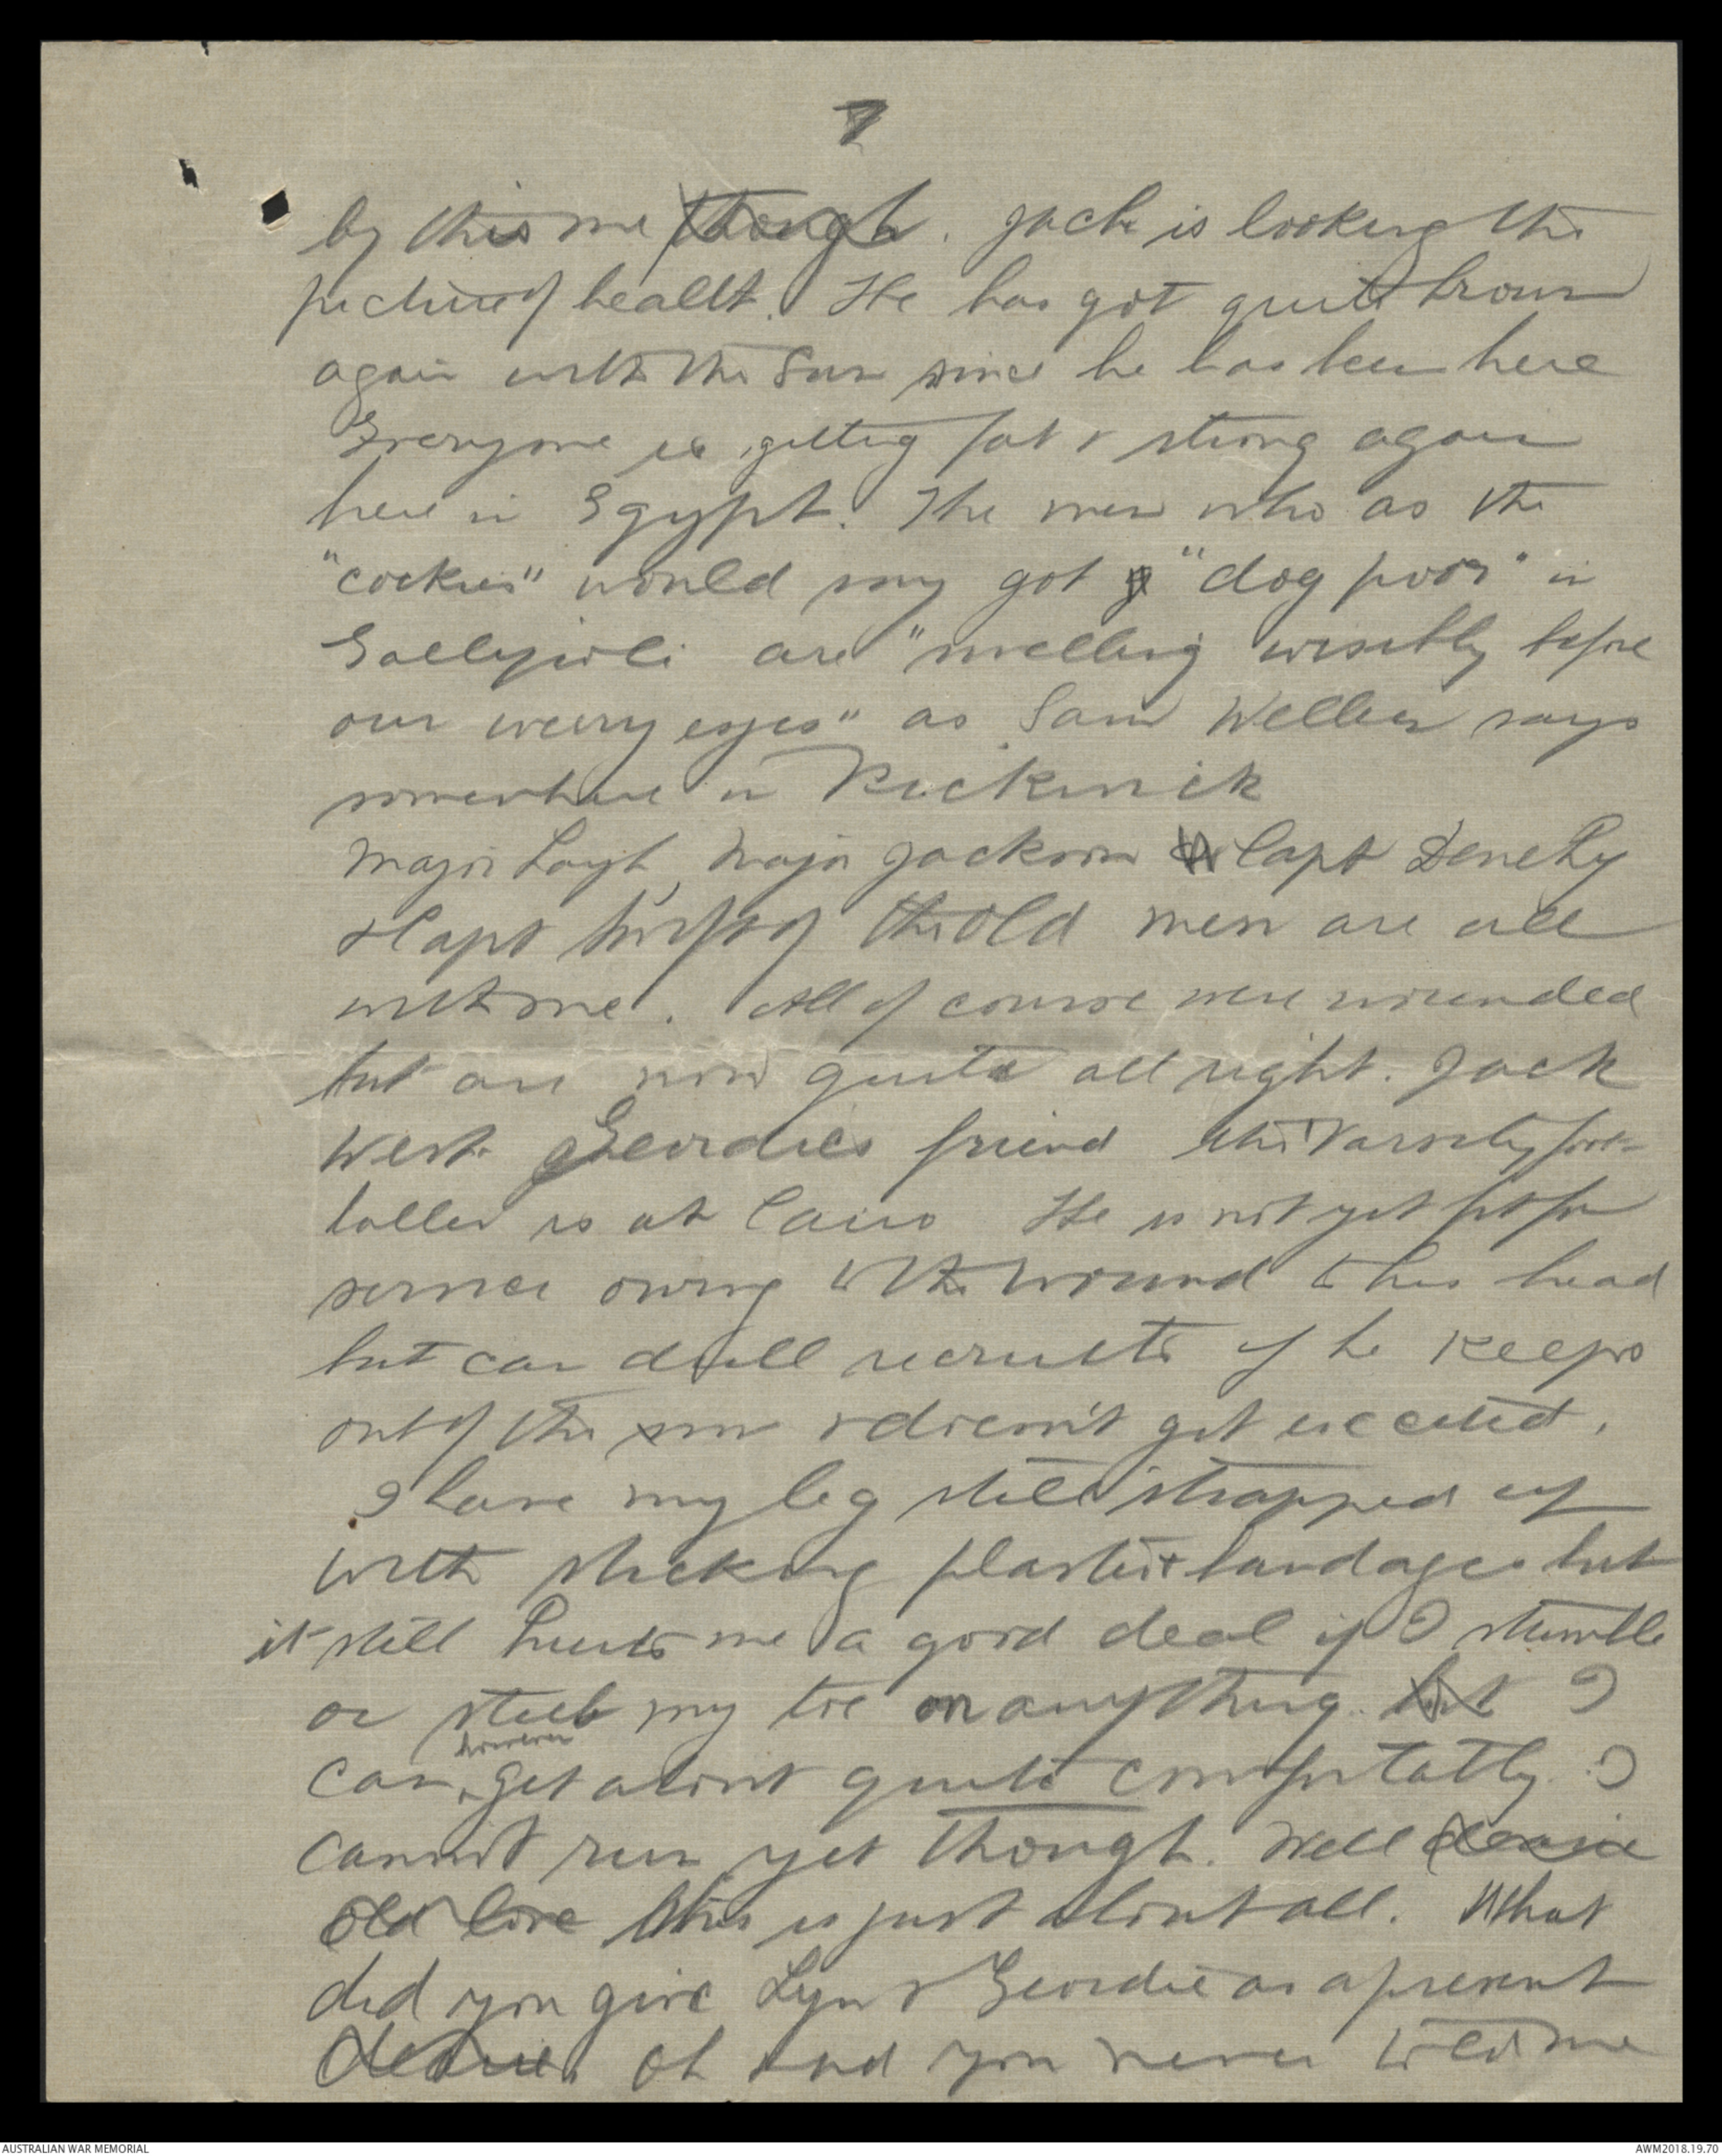 7
by this me though. Jack is looking the
picture of health. He has got quite brown
again with the Sun since he has been here
Everyone is getting fat & strong again
here in Egypt. The men who as the
"cockies" would say got "dog poor" in
Gallipoli are "swelling wisibly before
our werry eyes" as Sam Weller says
somewhere in Pickwick
Major Layh, Major Jackson Capt Denehy
& Capt of the Old men are all
with me. All of course were wounded
but are now quite all right. Jack
West Geordies friend the Varsity foot-
baller is at Cairo He is not yet fit for
service owing to the wound to his head
but can drill recruits if he keeps
out of the sun & doesn't get excited.
I have my leg still strapped up
with sticking plaster & bandages but
it still hurts me a good deal if I stumble
or stub my toe on anything. but I
however
can get about quite comfortably. I
cannot run yet though. Well dearie
old love this is just about all. What
did you give Lyn & Geordie as a present
dearie. Oh and you never told me
AUSTRALIAN WAR MEMORIAL
AWM2018.19.70